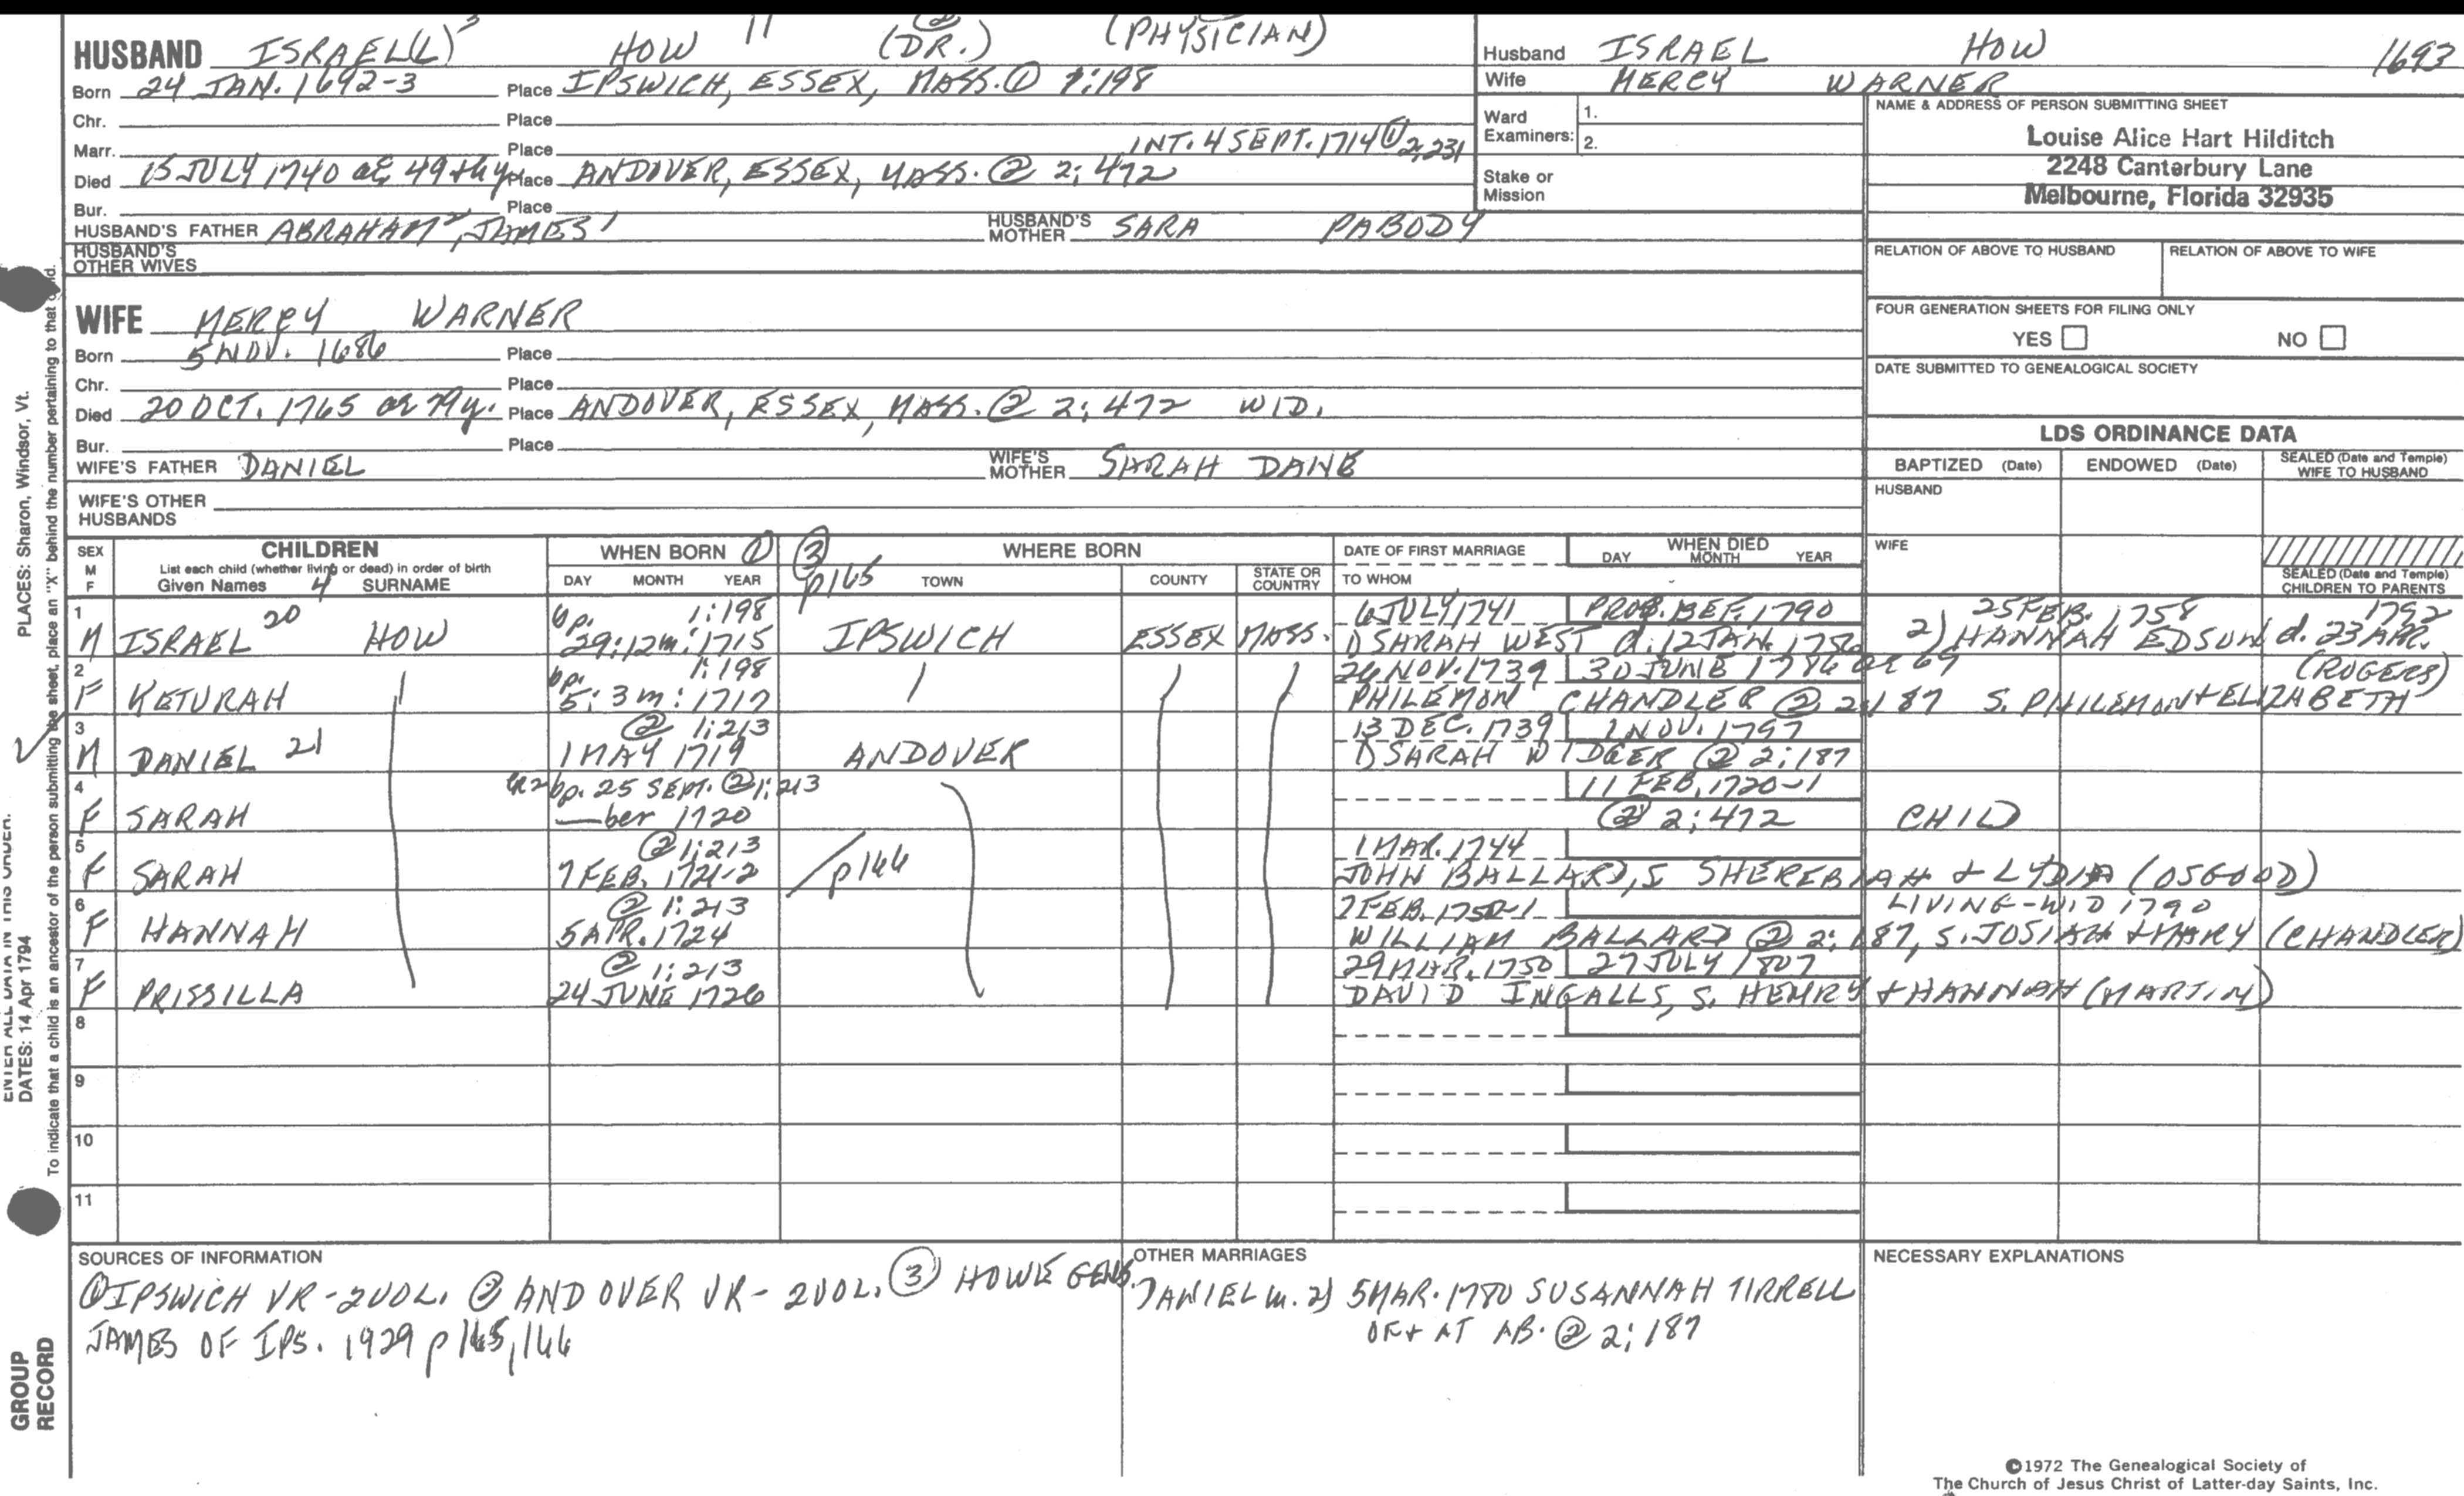 HUSBAND ISRAEL(L) 3 HOW 11 (DR.) ② (PHYSICIAN)
Born 24 JAN. 1692-3 Place IPSWICH, ESSEX, MASS. ① 1:198
Chr. Place
Marr. Place INT. 4 SEPT. 1714 ① 2,231
Died 15 JULY 1740 ae 49th y Place ANDOVER, ESSEX, MASS. ② 2:472
Bur. Place
HUSBAND'S FATHER ABRAHAM 2, JAMES 1 HUSBAND'S MOTHER SARA PABODY
HUSBAND'S OTHER WIVES
WIFE MERCY WARNER
Born 5 NOV. 1686 Place
Chr. Place
Died 20 OCT. 1765 ae 79y. Place ANDOVER, ESSEX, MASS. ② 2:472 WID.
Bur. Place
WIFE'S FATHER DANIEL WIFE'S MOTHER SARAH DANE
WIFE'S OTHER HUSBANDS
Husband ISRAEL HOW 1693
Wife MERCY WARNER
Ward Examiners: 1.
2.
Stake or Mission
NAME & ADDRESS OF PERSON SUBMITTING SHEET
Louise Alice Hart Hilditch
2248 Canterbury Lane
Melbourne, Florida 32935
RELATION OF ABOVE TO HUSBAND RELATION OF ABOVE TO WIFE
FOUR GENERATION SHEETS FOR FILING ONLY
YES NO
DATE SUBMITTED TO GENEALOGICAL SOCIETY
LDS ORDINANCE DATA
BAPTIZED (Date) ENDOWED (Date) SEALED (Date and Temple) WIFE TO HUSBAND
HUSBAND
WIFE
SEALED (Date and Temple) CHILDREN TO PARENTS
SEX M F CHILDREN WHEN BORN ① ③ p165 WHERE BORN DATE OF FIRST MARRIAGE WHEN DIED
List each child (whether living or dead) in order of birth
Given Names 4 SURNAME DAY MONTH YEAR TOWN COUNTY STATE OR COUNTRY TO WHOM DAY MONTH YEAR
1 bp. 1:198 6 JULY 1741 PROB. BEF. 1790 25 FEB. 1758 1792
M ISRAEL 20 HOW 29:12m:1715 IPSWICH ESSEX MASS. 1) SARAH WEST d. 12 JAN. 1756 2) HANNAH EDSON d. 23 APR.
2 bp. 1:198 26 NOV. 1739 30 JUNE 1786 ae 69 (ROGERS)
F KETURAH 5:3m:1717 PHILEMON CHANDLER ② 2:187 S. PHILEMON + ELIZABETH
3 ② 1:213 13 DEC. 1739 1 NOV. 1797
M DANIEL 21 1 MAY 1719 ANDOVER 1) SARAH WIDGER ② 2:187
4 bp. 25 SEPT. ② 1:213 11 FEB. 1720-1
F SARAH —ber 1720 ② 2:472 CHILD
5 ② 1:213 1 MAR. 1744
F SARAH 7 FEB. 1721-2 p166 JOHN BALLARD, S SHEREBIAH + LYDIA (OSGOOD)
6 ② 1:213 7 FEB. 1750-1 LIVING-WID 1790
F HANNAH 5 APR. 1724 WILLIAM BALLARD ② 2:187, S. JOSIAH + MARY (CHANDLER)
7 ② 1:213 29 MAR. 1750 27 JULY 1807
F PRISSILLA 24 JUNE 1726 DAVID INGALLS, S. HENRY + HANNAH (MARTIN)
8
9
10
11
SOURCES OF INFORMATION
① IPSWICH VR - 2VOL. ② ANDOVER VR - 2VOL. ③ HOWE GENS.
JAMES OF IPS. 1929 p 165, 166
OTHER MARRIAGES
DANIEL m. 2) 5 MAR. 1780 SUSANNAH TIRRELL
OF + AT AB. ② 2:187
NECESSARY EXPLANATIONS
©1972 The Genealogical Society of
The Church of Jesus Christ of Latter-day Saints, Inc.
PLACES: Sharon, Windsor, Vt.
ENTER ALL DATA IN THIS ORDER:
DATES: 14 Apr 1794
To indicate that a child is an ancestor of the person submitting the sheet, place an "X" behind the number pertaining to that child.
GROUP
RECORD